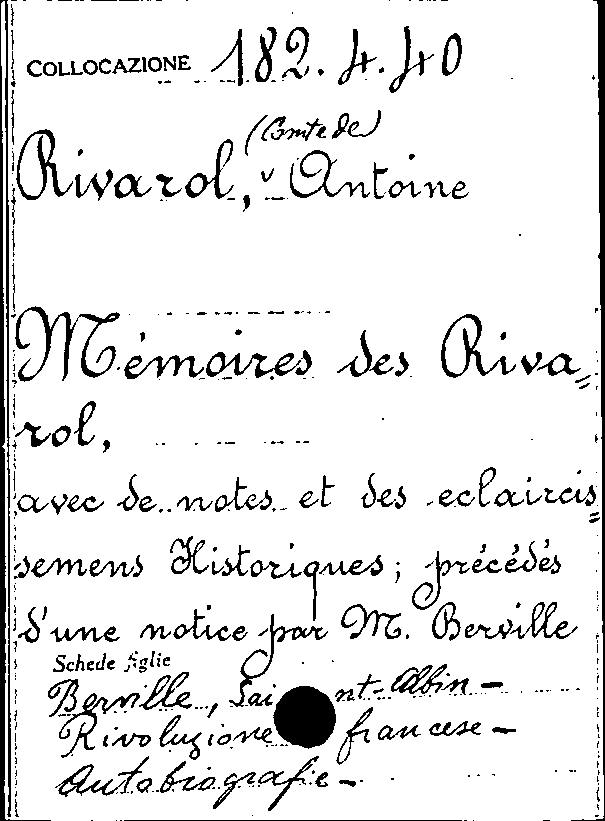 COLLOCAZIONE 182.4.40
(Comte de)
Rivarol, Antoine
Mémoires des Riva=
rol,
avec de notes et des eclaircis=
semens Historiques; précédés
d'une notice par M. Berville
Schede figlie
Berville, Saint-Albin –
Rivoluzione francese –
Autobiografie –